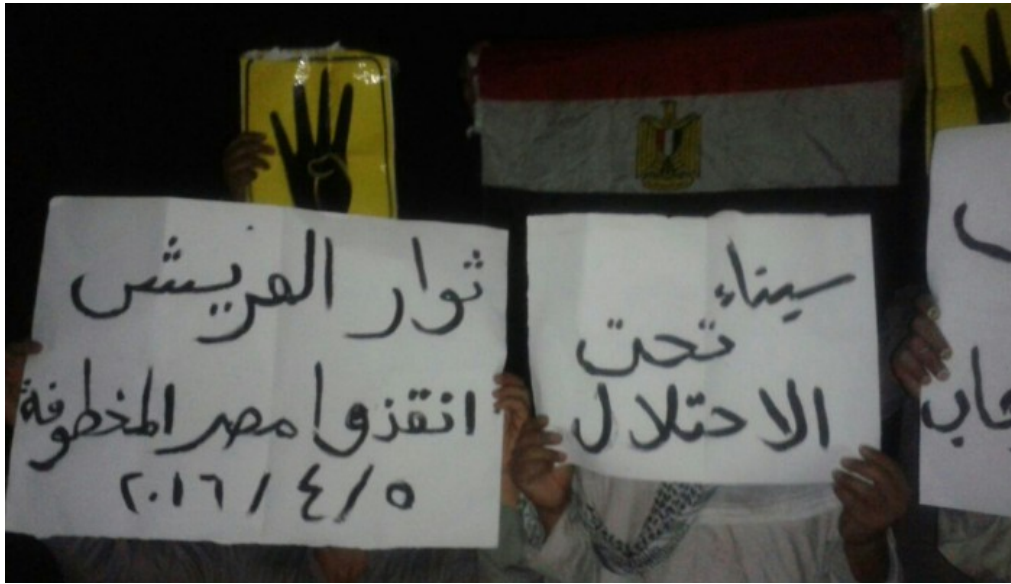 ثوار العريش
انقذوا مصر المخطوفة
٢٠١٦/٤/٥
سيناء
تحت
الاحتلال